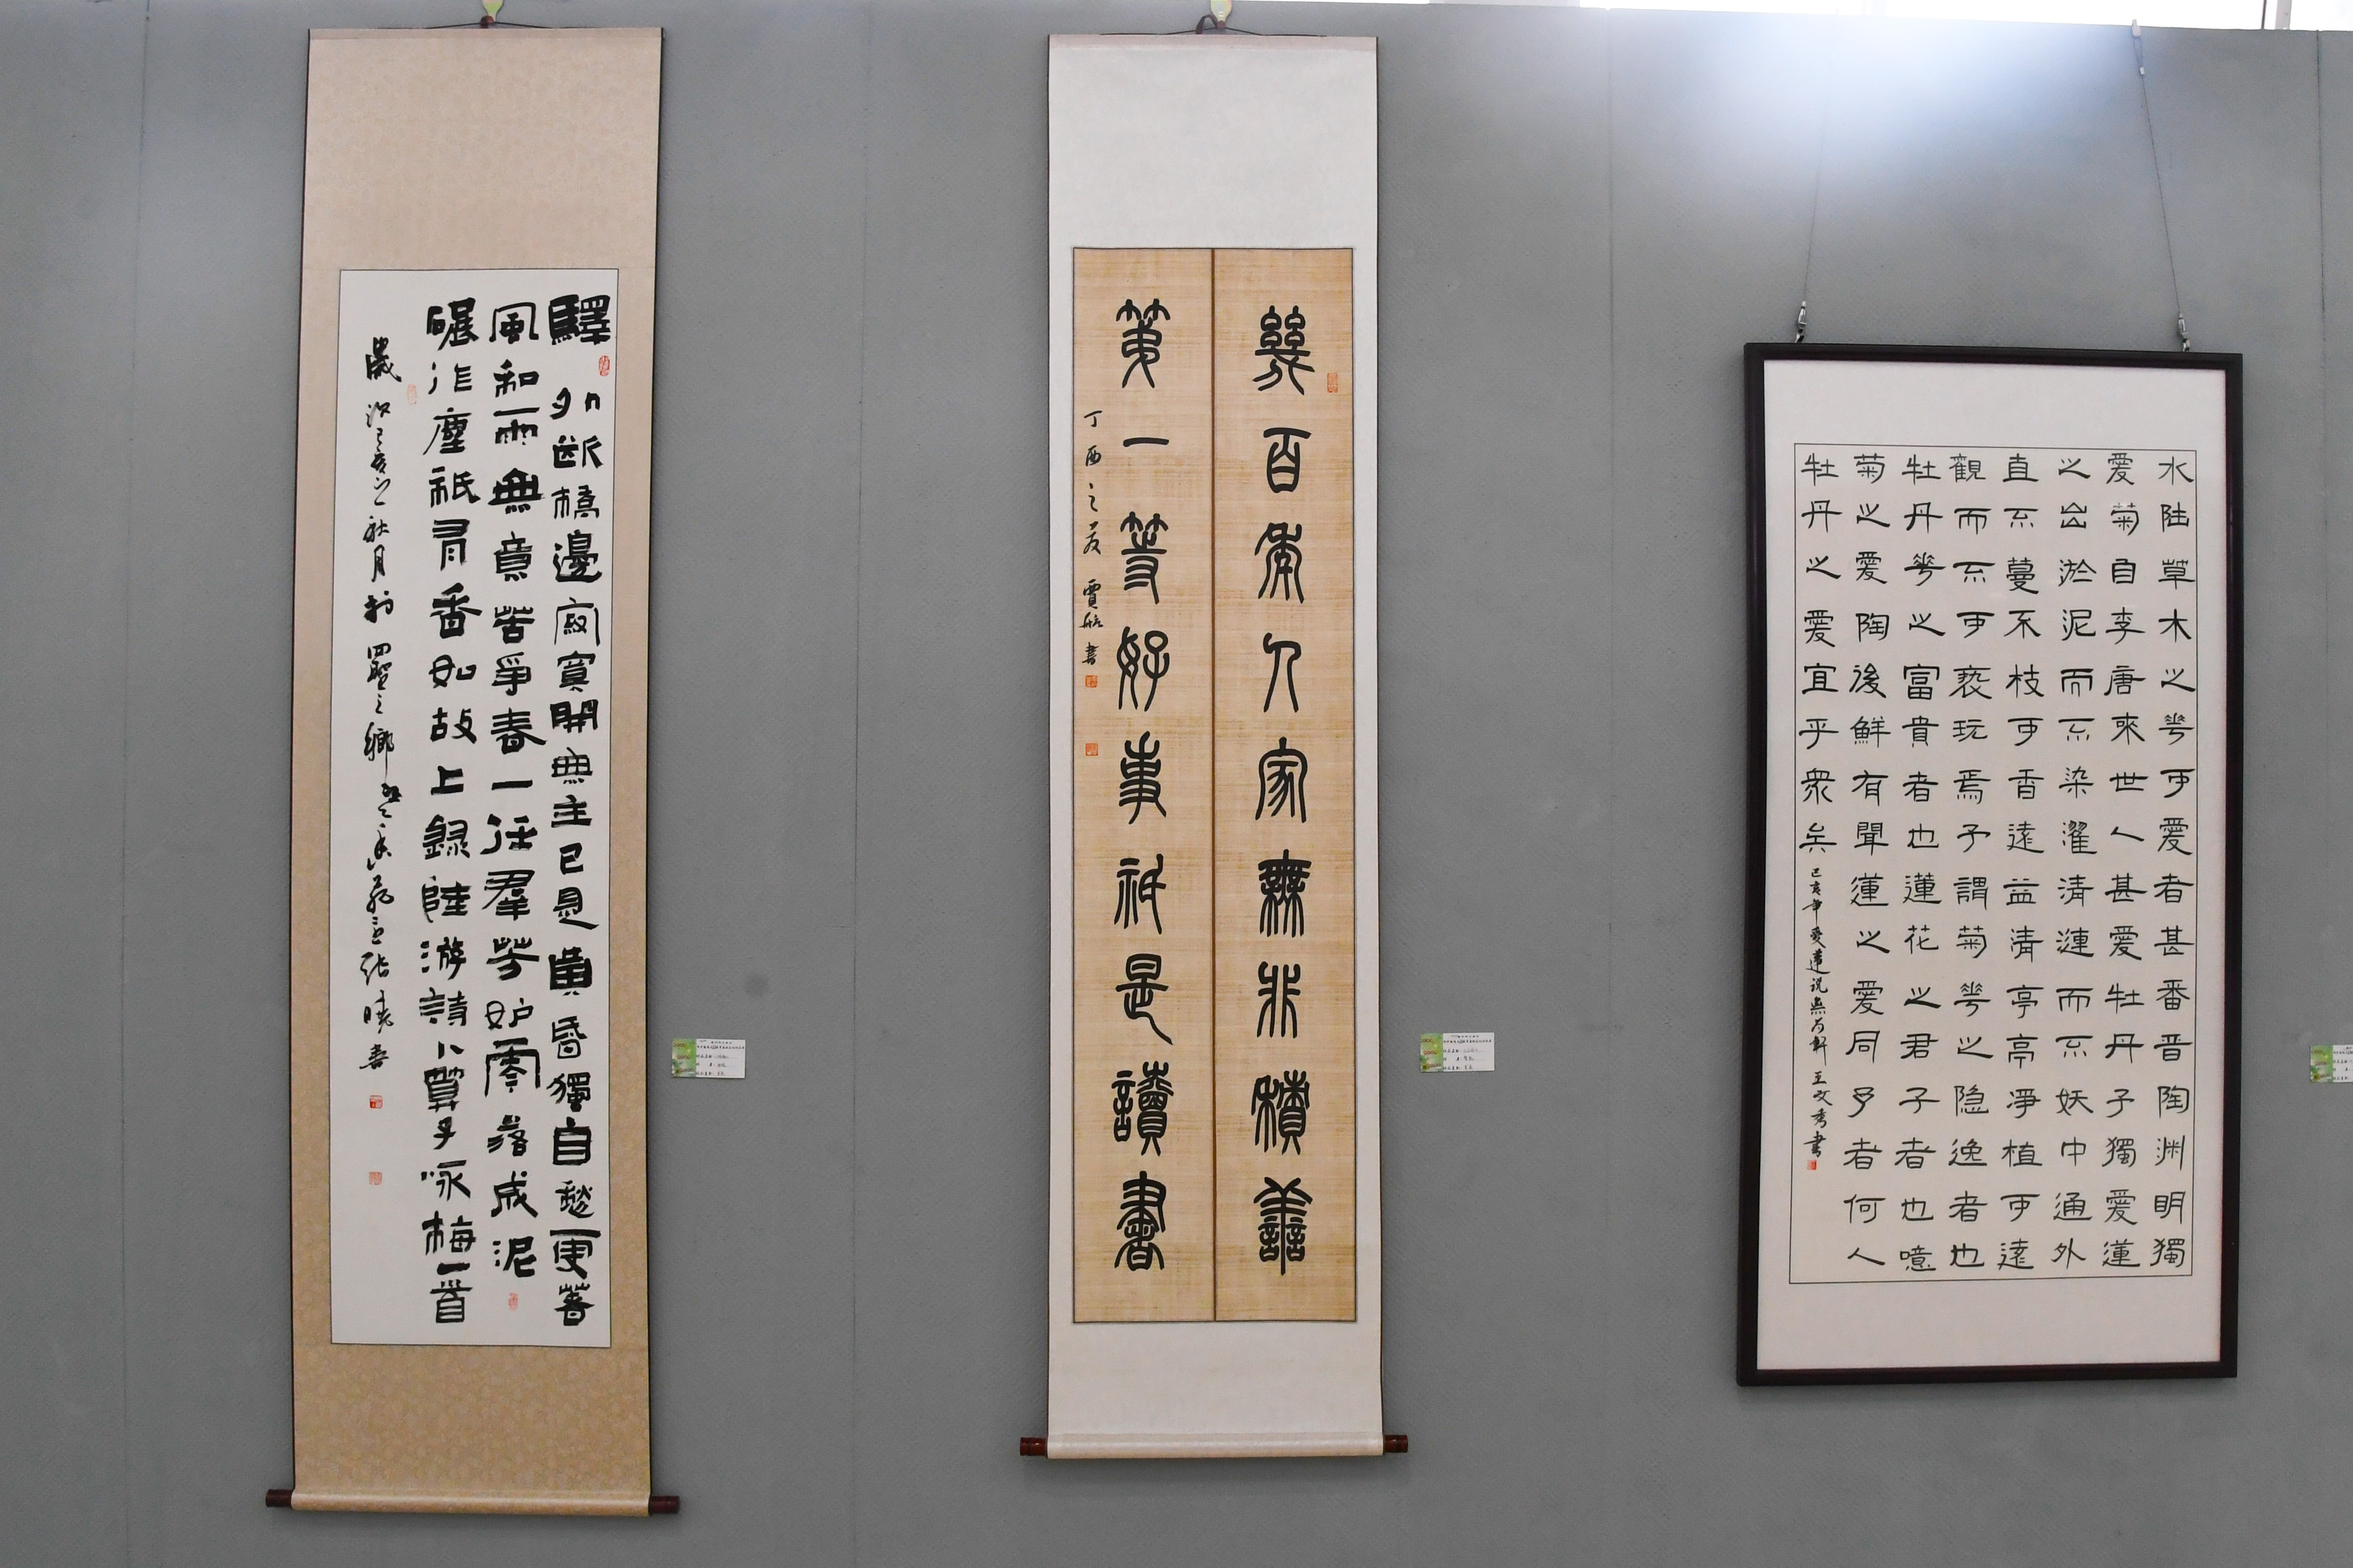 驛外斷橋邊寂寞開無主已是黃昏獨自愁更著
風和雨無意苦爭春一任羣芳妒零落成泥
碾作塵祇有香如故上錄陸游詩卜算子咏梅一首
歲次己亥之秋月於四聖之鄉
幾百年人家無非積善
第一等好事祇是讀書
丁酉之夏 賈 書
水陆草木之華可愛者甚番晋陶渊明獨
愛菊自李唐來世人甚愛牡丹子獨愛蓮
之出淤泥而不染濯清漣而不妖中通外
直不蔓不枝可香遠益清亭亭淨植可遠
觀而不可褻玩焉予謂菊華之隐逸者也
牡丹華之富貴者也蓮花之君子者也噫
菊之愛陶後鮮有聞蓮之愛同予者何人
牡丹之愛宜乎衆矣
己亥年愛蓮説 王文秀書